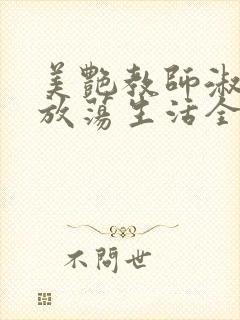 美艷教師淑
放蕩生活全
不問世